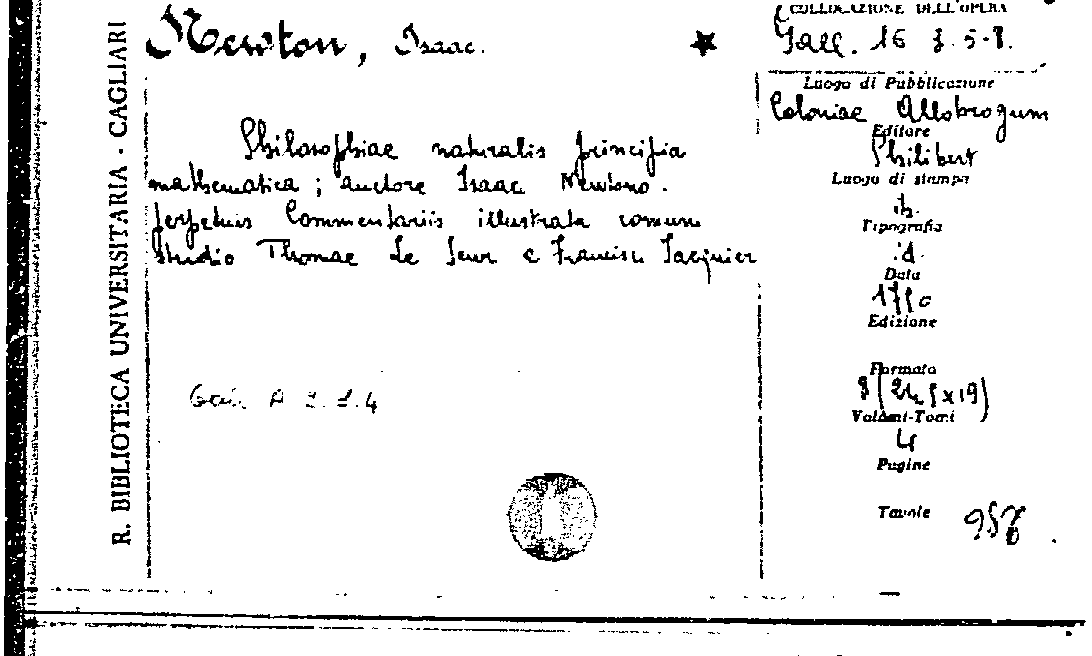 R. BIBLIOTECA UNIVERSITARIA - CAGLIARI
Newton, Isaac.
Philosophiae naturalis principia
mathematica; auctore Isaac Newtono.
perpetuis Commentariis illustrata comuni
studio Thomae Le Seur e Francisci Jacquier
COLLOCAZIONE DELL'OPERA
Gall. 16 5-8.
Luogo di Pubblicazione
Coloniae Allobrogum
Editore
Philibert
Luogo di stampa
Tipografia
id.
Data
Edizione
Formato
8 (24,5x19)
Volumi-Tomi
4
Pagine
Tavole